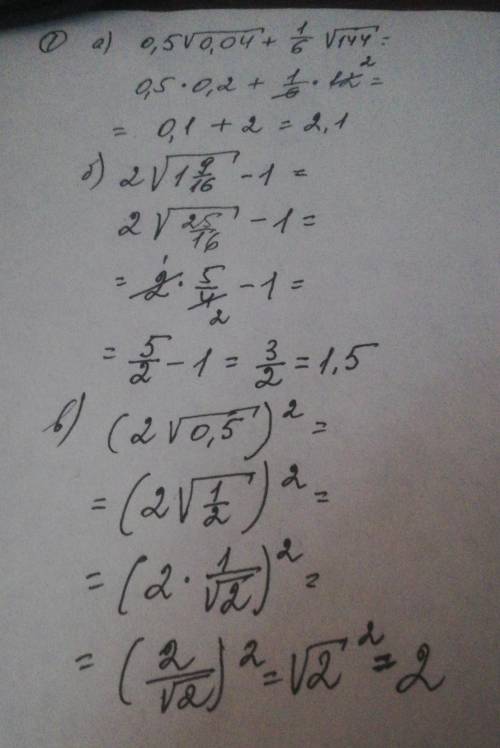 ① а) 0,5√0,04 + 1/6 √144 =
0,5 · 0,2 + 1/6 · 12 2 =
= 0,1 + 2 = 2,1
б) 2√1 9/16 - 1 =
2√25/16 - 1 =
= 2 1 · 5/4 2 - 1 =
= 5/2 - 1 = 3/2 = 1,5
в) (2√0,5)² =
= (2√1/2)² =
= (2 · 1/√2)² =
= (2/√2)² = √2² = 2